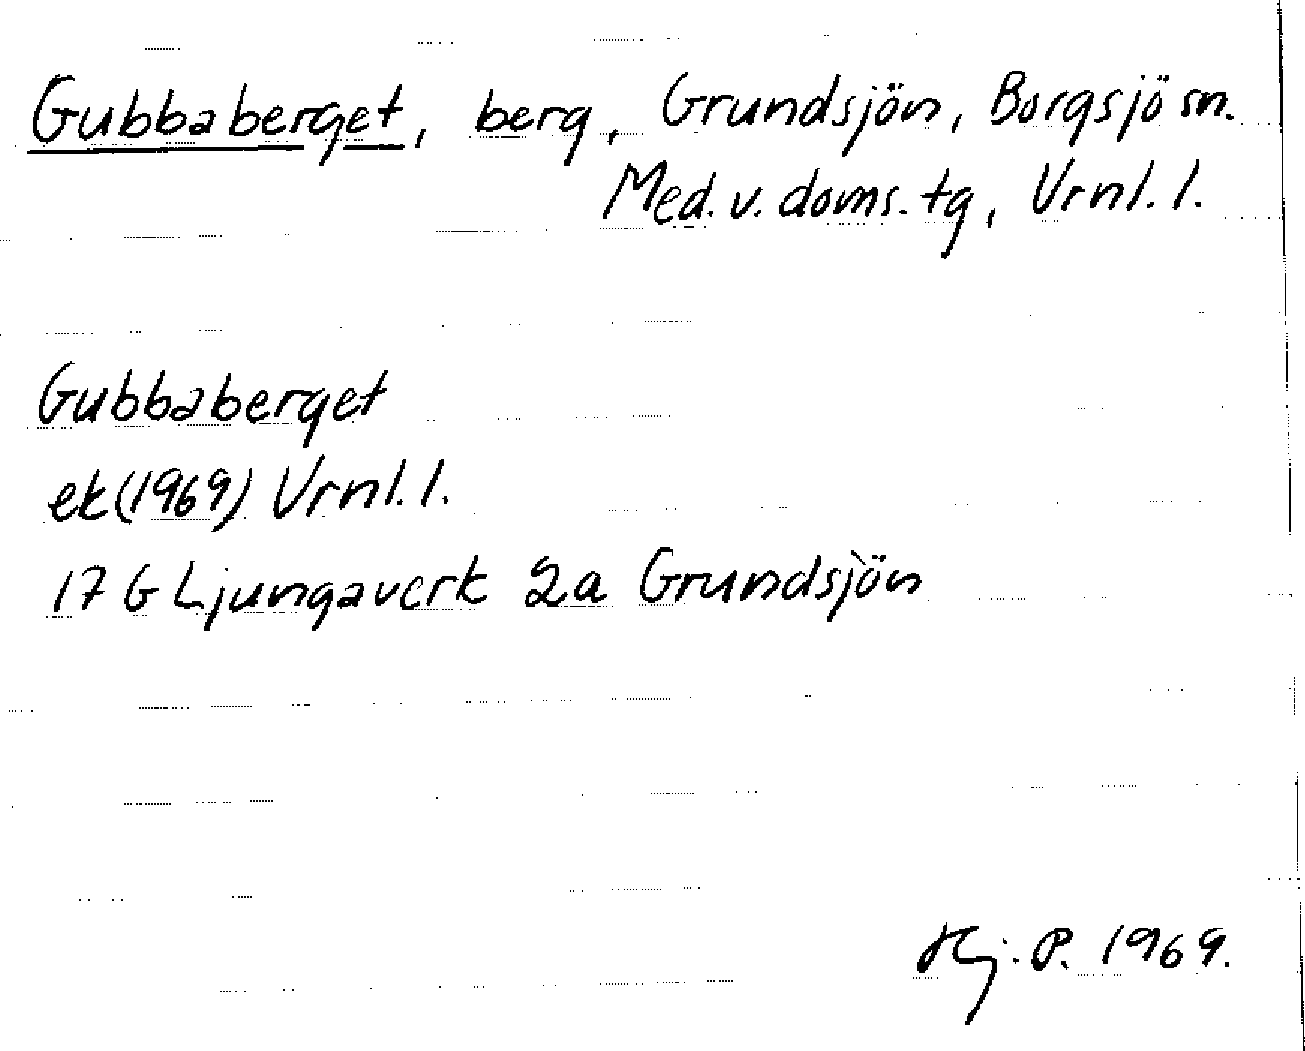 Gubbaberget, berg, Grundsjön, Borgsjö sn.
Med. v. doms. tg, Vrnl. l.
Gubbaberget
ek(1969) Vrnl. l.
17 G Ljungaverk 2a Grundsjön
Hj. P. 1969.